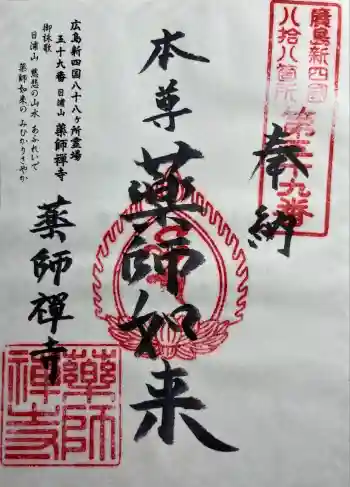 廣島新四國
八拾八箇所
第三十九番
奉納
本尊
藥師如来
広島新四国八十八ヶ所霊場
五十六番 日浦山 薬師禅寺
御詠歌
日浦山 慈悲の山水 あふれいで
薬師如来の みひかりさやか
薬師禪寺
藥師
禪寺